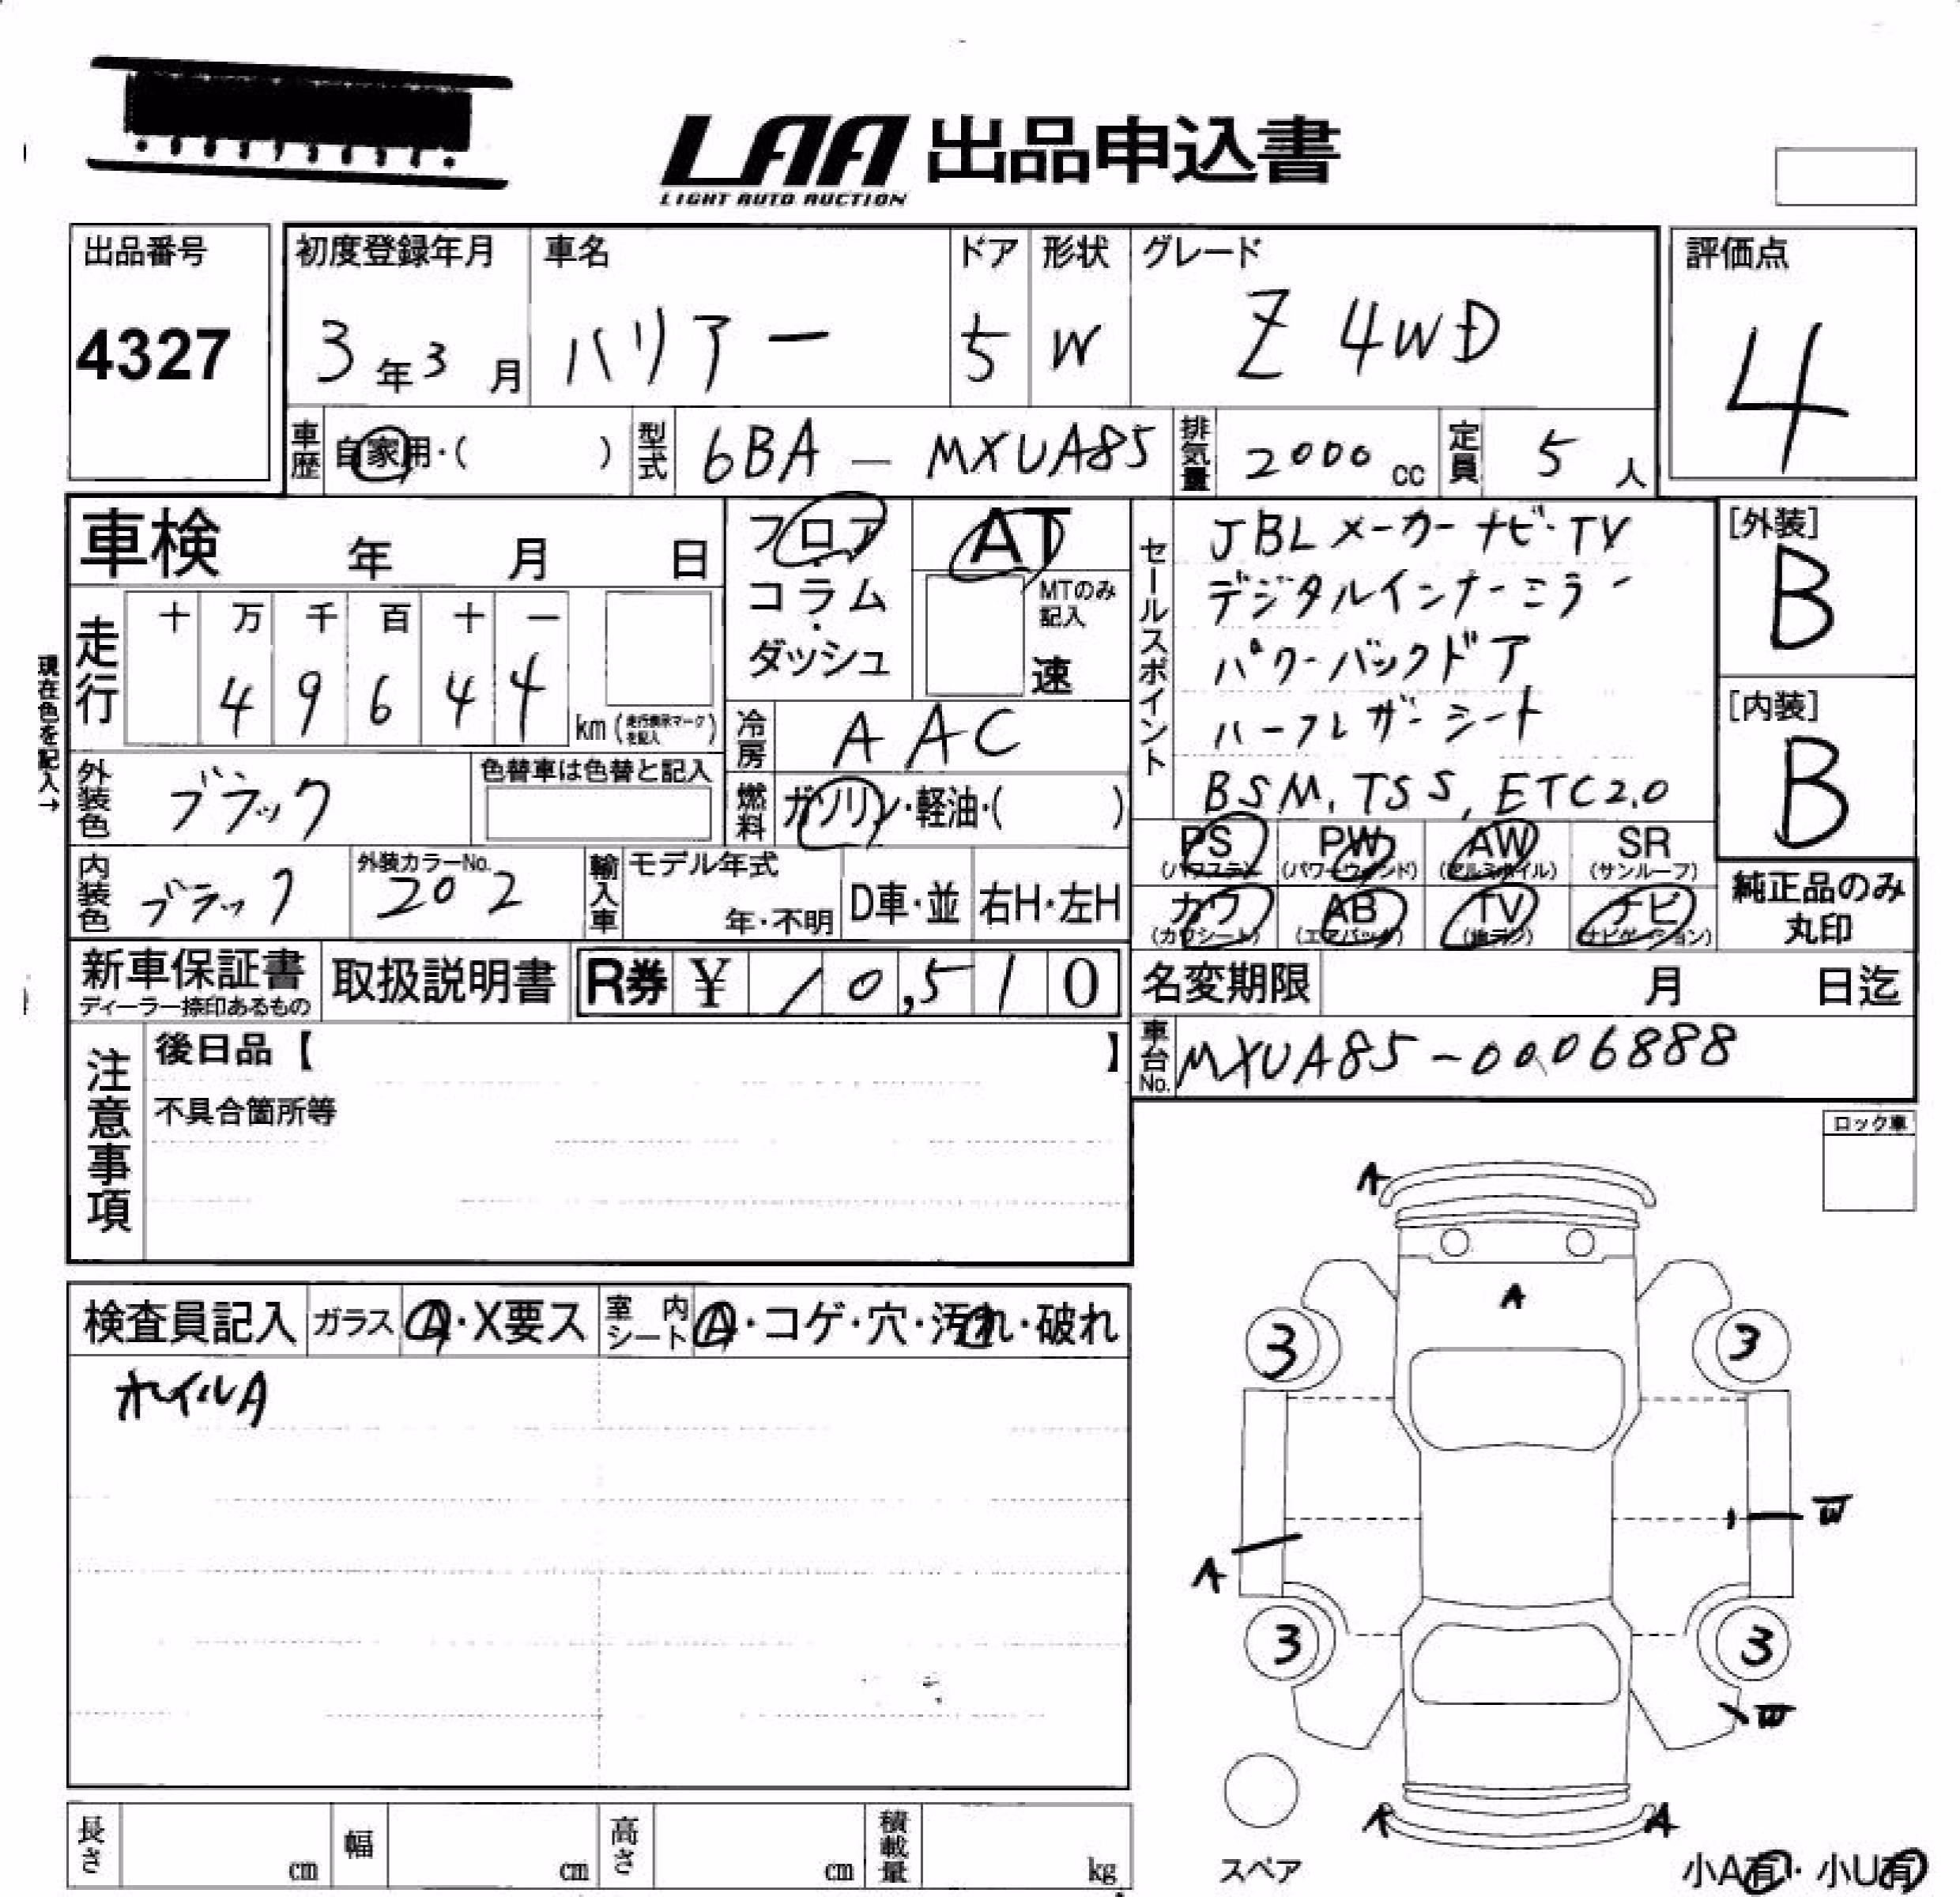 LAA 出品申込書
LIGHT AUTO AUCTION
出品番号 初度登録年月 車名 ドア 形状 グレード 評価点
4327 3年3月 ハリアー 5 W Z 4WD 4
車歴 自家用・( ) 型式 6BA - MXUA85 排気量 2000 cc 定員 5 人
車検 年 月 日
フロア・コラム・ダッシュ
AT
MTのみ記入
速
セールスポイント
JBLメーカーナビ・TV
デジタルインナーミラー
パワーバックドア
ハーフレザーシート
BSM, TSS, ETC2.0
[外装]
B
[内装]
B
現在色を記入→
走行 十 万 千 百 十 一
4 9 6 4 4 km (走行表示マークを記入)
冷房 AAC
外装色 ブラック 色替車は色替と記入
燃料 ガソリン・軽油・( )
内装色 ブラック 外装カラーNo. 202 輸入車 モデル年式 年・不明 D車・並 右H・左H
PS (パワステ) PW (パワーウインド) AW (アルミホイル) SR (サンルーフ)
カワ (カワシート) AB (エアバック) TV (地デジ) ナビ (ナビゲーション)
純正品のみ
丸印
新車保証書 取扱説明書 R券 ¥ 10,510
ディーラー捺印あるもの
名変期限 月 日迄
車台No. MXUA85-0006888
注意事項
後日品【 】
不具合箇所等
ロック車
検査員記入 ガラス A・X要ス 室内シート A・コゲ・穴・汚れ・破れ
ホイルA
A
A
3 3
A
W
3 3
W
A
スペア
小A有・小U有
長さ cm 幅 cm 高さ cm 積載量 kg